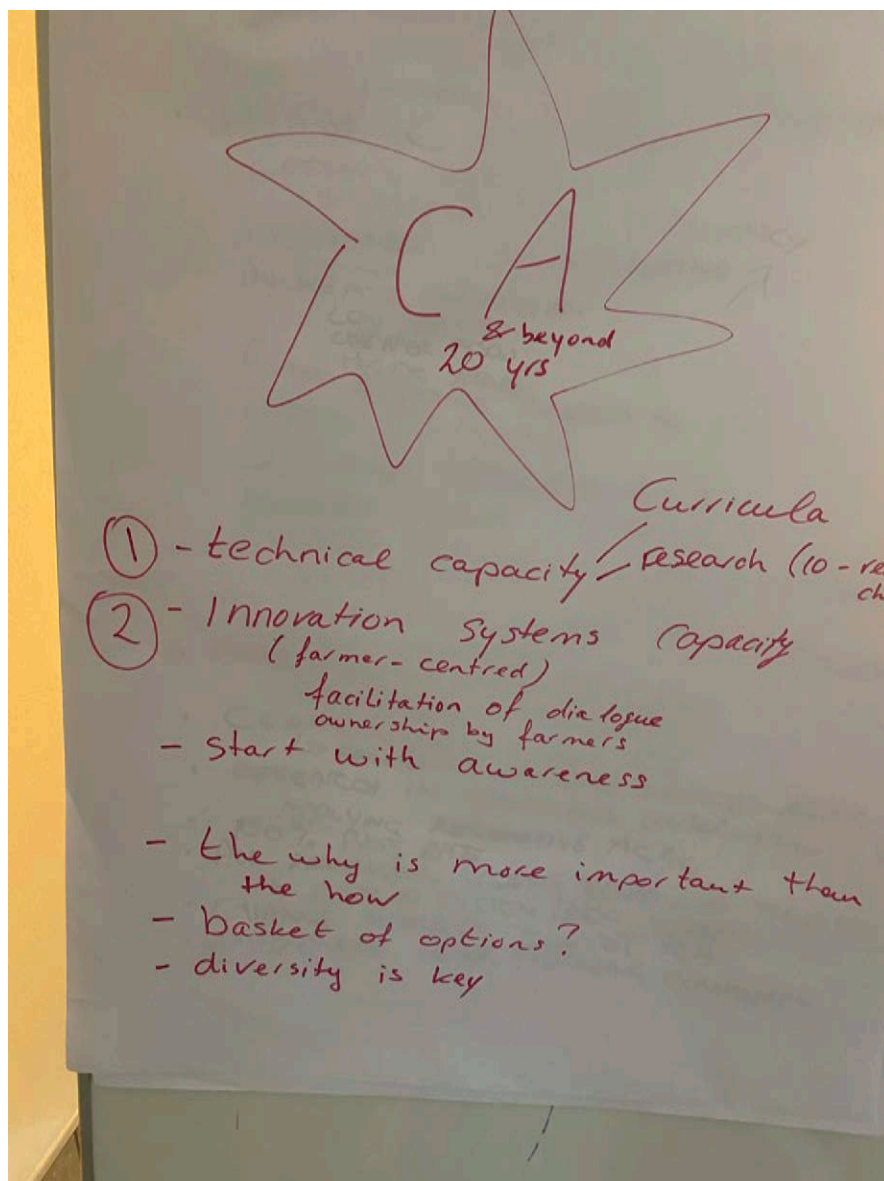 CA
& beyond
20 yrs
Curricula
① - technical capacity research (10 - re
ch
② - Innovation Systems Capacity
(farmer-centred)
facilitation of dialogue
ownership by farmers
- start with awareness
- the why is more important than
the how
- basket of options?
- diversity is key